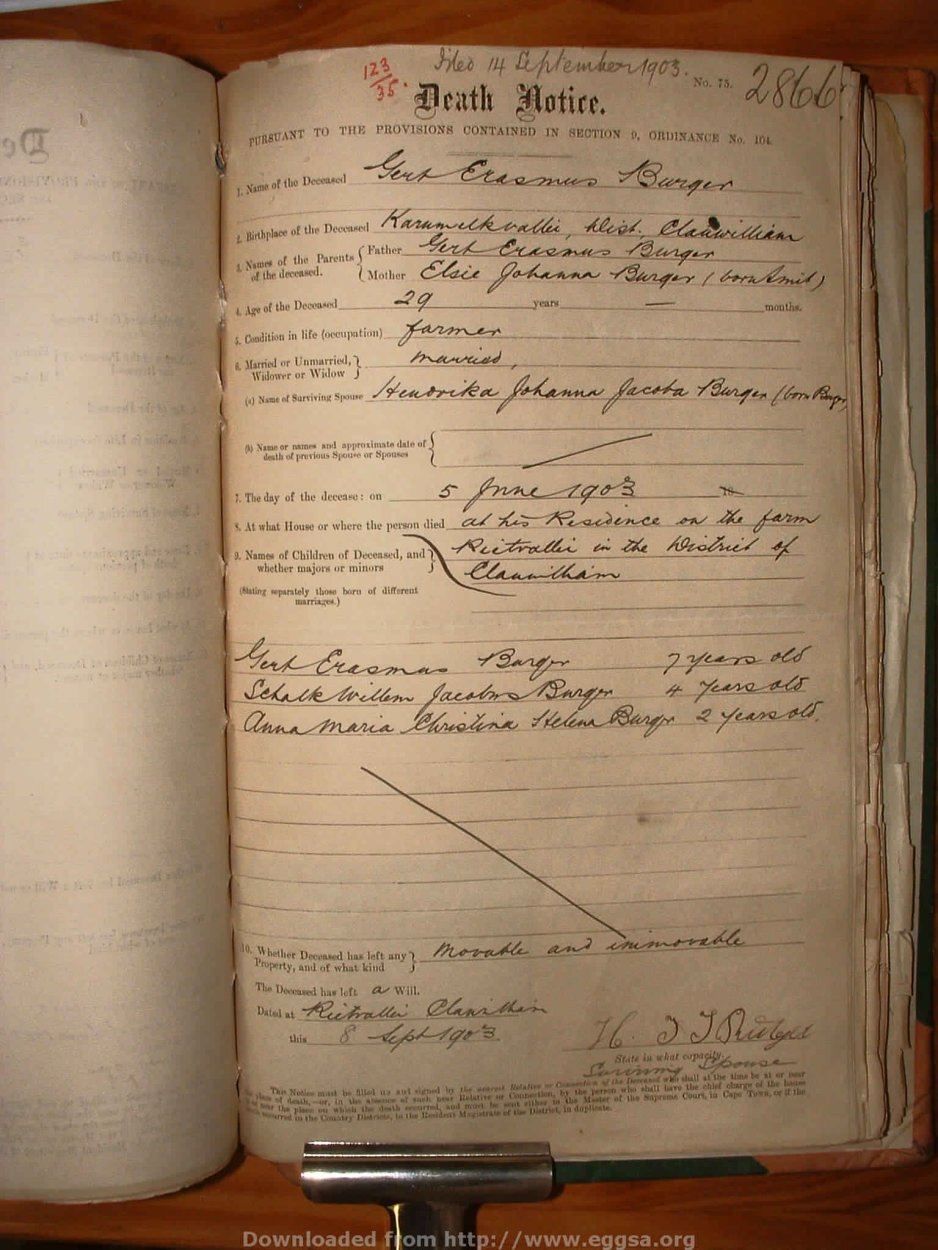 123/35.
Filed 14 September 1903.
No. 75. 2866
Death Notice.
PURSUANT TO THE PROVISIONS CONTAINED IN SECTION 9, ORDINANCE No. 104.
1. Name of the Deceased Gert Erasmus Burger
2. Birthplace of the Deceased Karnmelkvallei, Dist. Clanwilliam
3. Names of the Parents of the deceased. Father Gert Erasmus Burger
Mother Elsie Johanna Burger (born Smit)
4. Age of the Deceased 29 years — months.
5. Condition in life (occupation) farmer
6. Married or Unmarried, Widower or Widow married,
(a) Name of Surviving Spouse Hendrika Johanna Jacoba Burger (born Burger)
(b) Name or names and approximate date of
death of previous Spouse or Spouses
7. The day of the decease: on 5 June 1903
8. At what House or where the person died at his Residence on the farm
9. Names of Children of Deceased, and whether majors or minors
Rietvallei in the District of
Clanwilliam
(Stating separately those born of different
marriages.)
Gert Erasmus Burger 7 years old
Schalk Willem Jacobus Burger 4 Years old
Anna Maria Christina Helena Burger 2 years old.
10. Whether Deceased has left any Property, and of what kind Movable and immovable
The Deceased has left a Will.
Dated at Rietvallei Clanwilliam
this 8 Sept 1903
H. J J
State in what capacity.
Surviving Spouse
This Notice must be filled up and signed by the nearest Relative or Connection of the Deceased who shall at the time be at or near
place of death,—or, in the absence of such near Relative or Connection, by the person who shall have the chief charge of the house
near the place on which the death occurred, and must be sent either to the Master of the Supreme Court, in Cape Town, or if the
occurred in the Country Districts, to the Resident Magistrate of the District, in duplicate.
Downloaded from http://www.eggsa.org